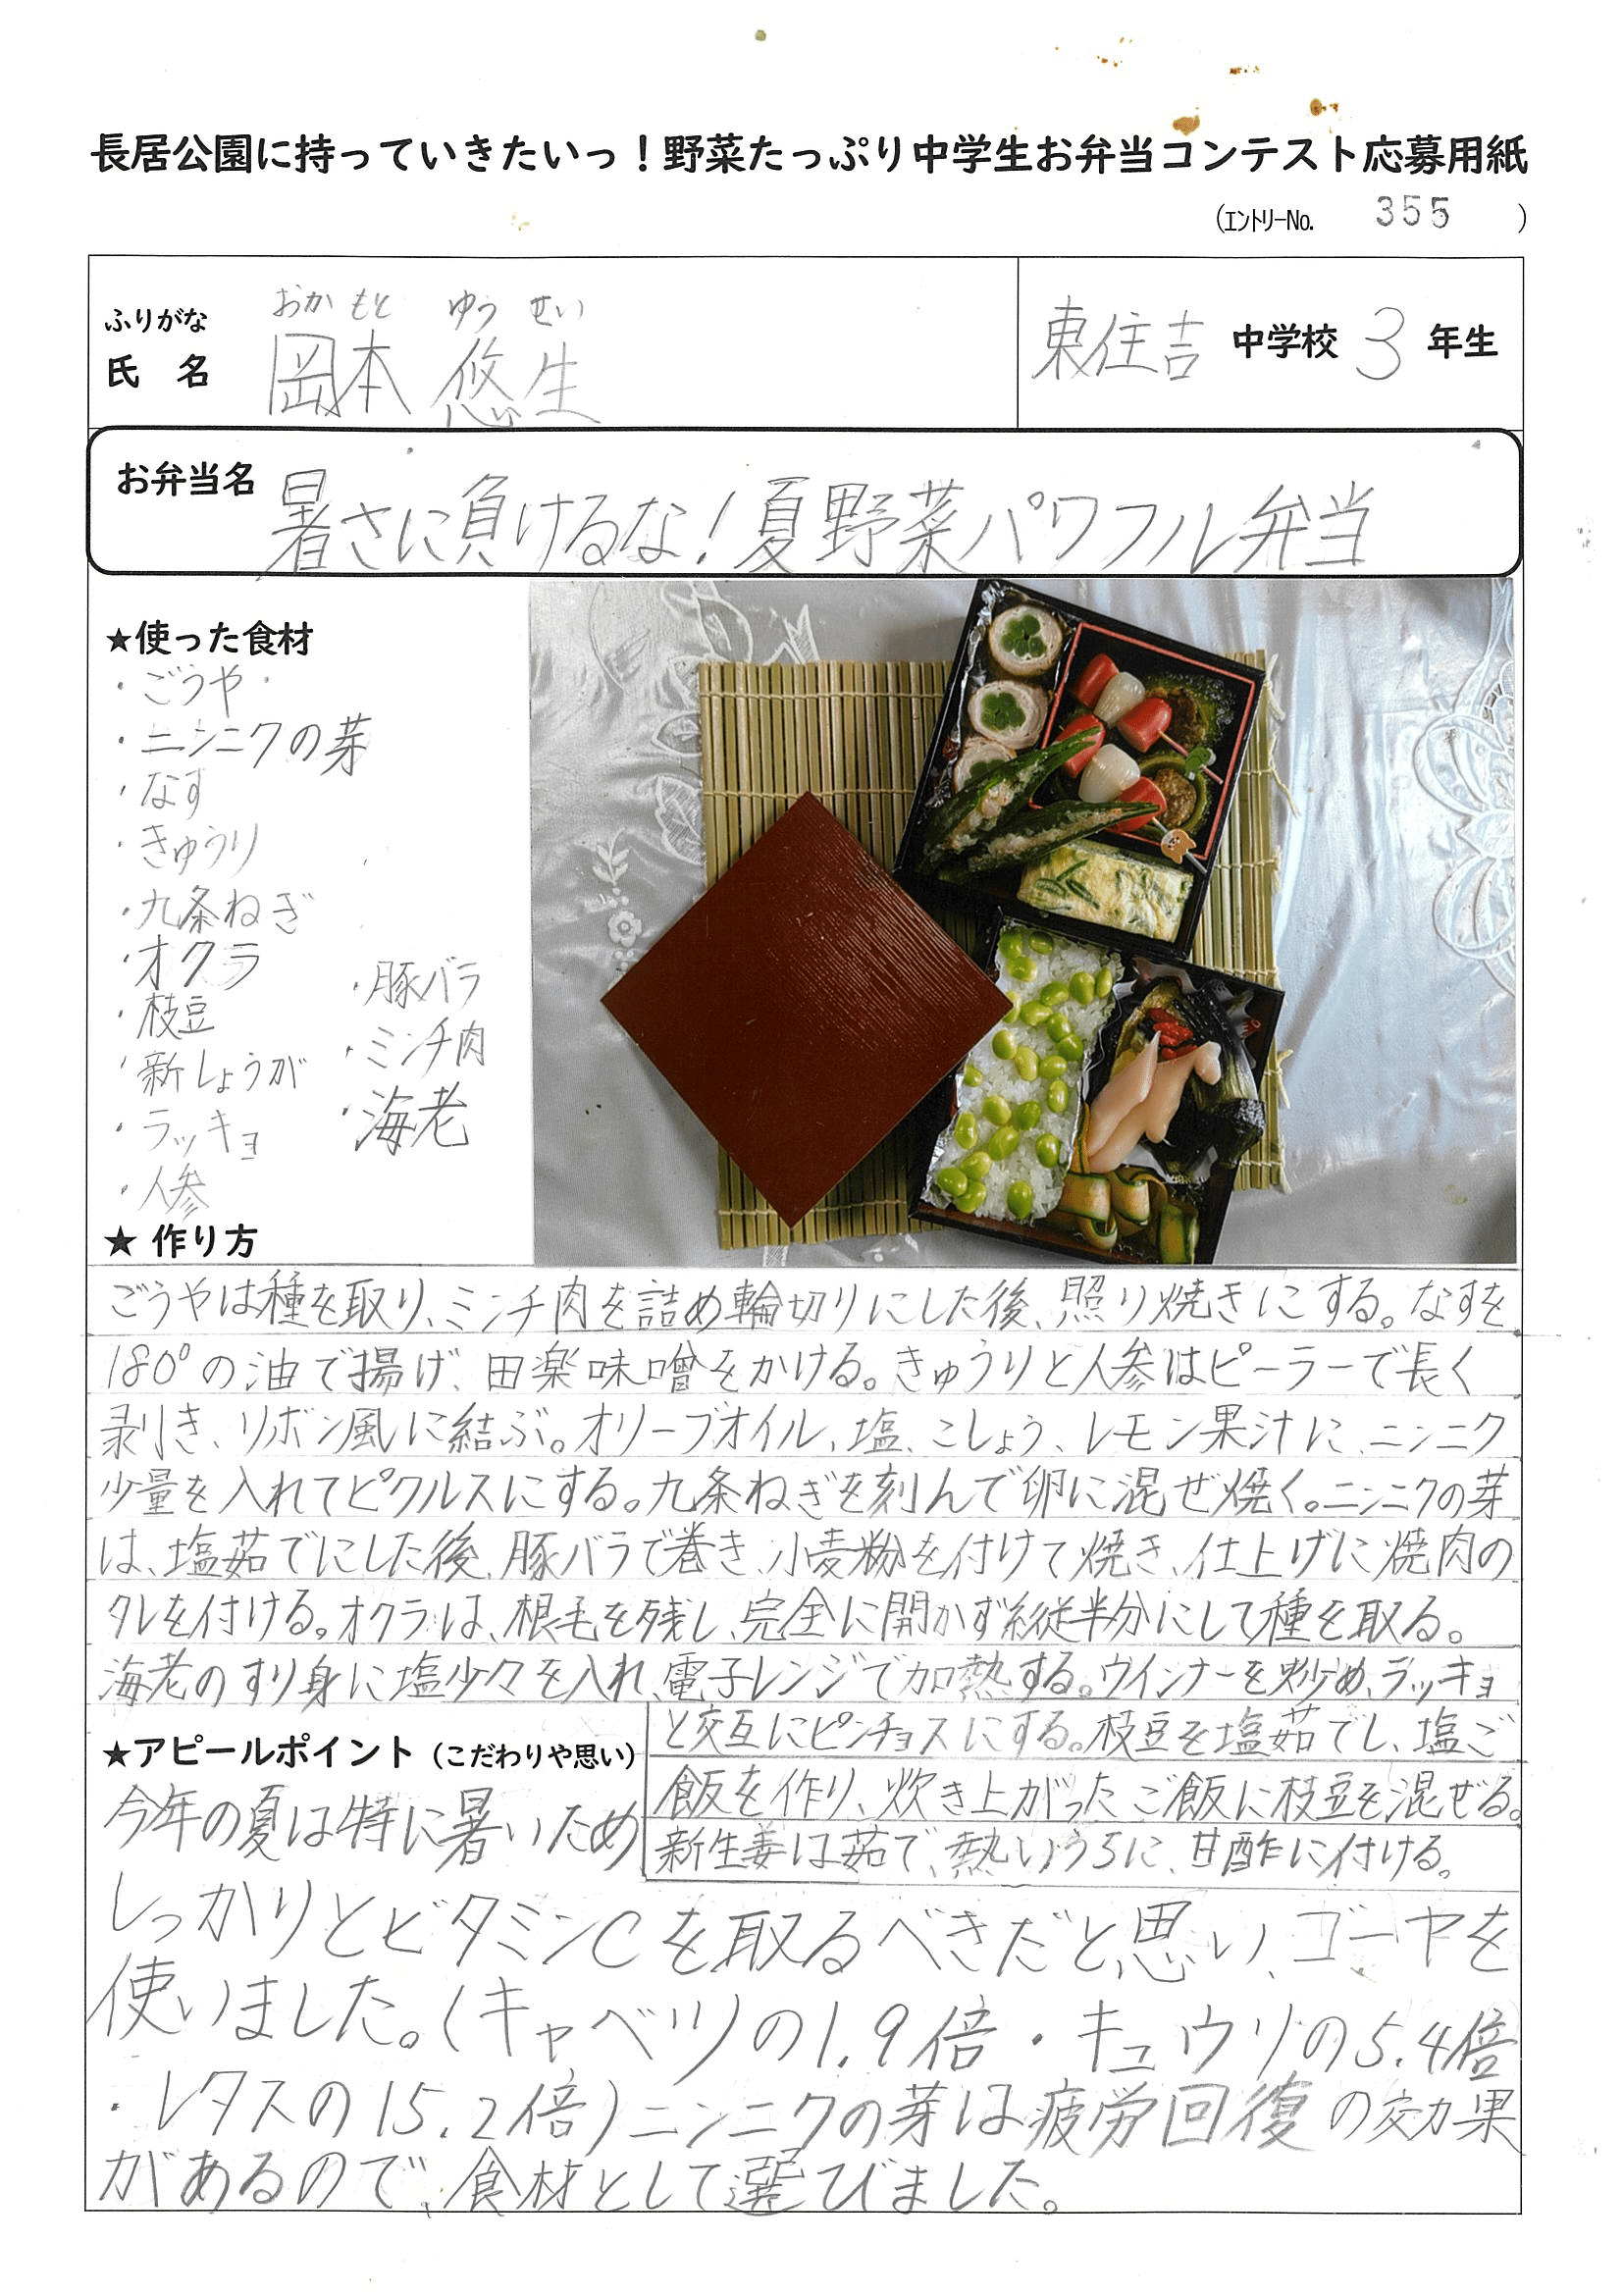 長居公園に持っていきたいっ！野菜たっぷり中学生お弁当コンテスト応募用紙
(エントリーNo. 355 )
ふりがな おかもと ゆうせい
氏 名 岡本 悠生
東住吉 中学校 3 年生
お弁当名 暑さに負けるな！夏野菜パワフル弁当
★使った食材
・ごうや
・ニンニクの芽
・なす
・きゅうり
・九条ねぎ
・オクラ
・枝豆
・新しょうが
・ラッキョ
・人参
・豚バラ
・ミンチ肉
・海老
★ 作り方
ごうやは種を取り、ミンチ肉を詰め輪切りにした後、照り焼きにする。なすを
180°の油で揚げ、田楽味噌をかける。きゅうりと人参はピーラーで長く
剥き、リボン風に結ぶ。オリーブオイル、塩、こしょう、レモン果汁に、ニンニク
少量を入れてピクルスにする。九条ねぎを刻んで卵に混ぜ焼く。ニンニクの芽
は、塩茹でにした後、豚バラで巻き、小麦粉を付けて焼き、仕上げに焼肉の
タレを付ける。オクラは、根毛を残し、完全に開かず縦半分にして種を取る。
海老のすり身に塩少々を入れ、電子レンジで加熱する。ウインナーを炒め、ラッキョ
と交互にピンチョスにする。枝豆を塩茹でし、塩ご
飯を作り、炊き上がったご飯に枝豆を混ぜる。
新生姜は茹で、熱いうちに、甘酢に付ける。
★アピールポイント（こだわりや思い）
今年の夏は特に暑いため
しっかりとビタミンCを取るべきだと思い、ゴーヤを
使いました。(キャベツの1.9倍・キュウリの5.4倍
・レタスの15.2倍)ニンニクの芽は疲労回復の効果
があるので、食材として選びました。